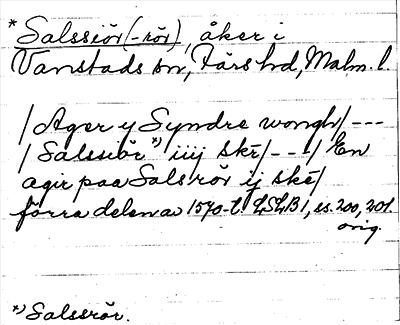 * Salssiör (-rör), åker i
Vanstads sn, Färs hd, Malm. l.
/ Ager y Syndre wongh / ---
/ Salssiör *) iiij skē / -- / En
agir paa Salsrör ij skē /
förra delen av 1570-t. LSLB 1, ss. 200, 201.
orig.
*) Salssrör.